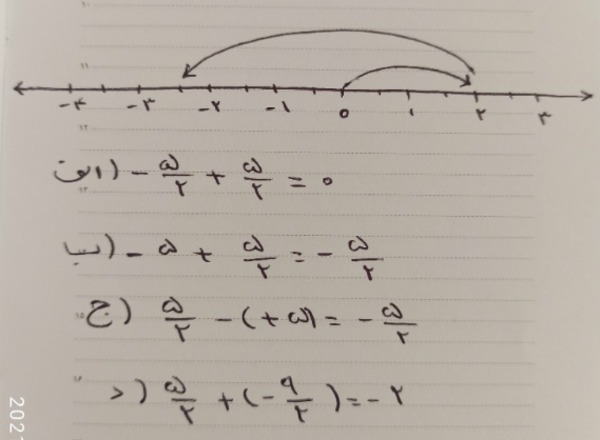 -۴ -۳ -۲ -۱ ۰ ۱ ۲ ۳
الف) -۵/۲ + ۵/۲ = ۰
ب) -۵ + ۵/۲ = -۵/۲
ج) ۵/۲ -(+۵) = -۵/۲
د) ۵/۲ +(-۹/۲) = -۲